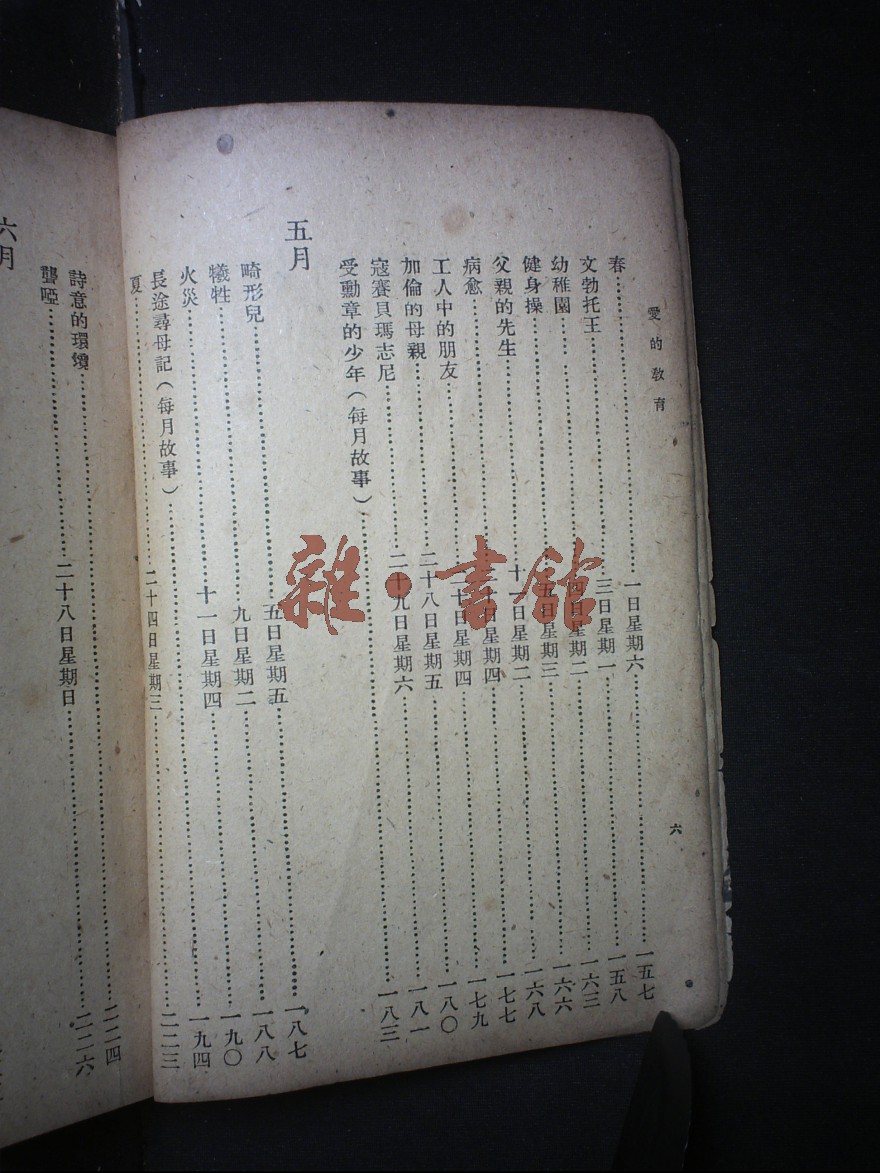 愛的教育
六
春……一日星期六……一五七
文勃托王……三日星期一……一五八
幼稚園……四日星期二……一六三
健身操……五日星期三……一六六
父親的先生……十一日星期二……一六八
病愈……日星期四……一七七
工人中的朋友……二十日星期四……一七九
加倫的母親……二十八日星期五……一八〇
寇賽貝瑪志尼……二十九日星期六……一八一
受勳章的少年(每月故事)……一八三
五月
畸形兒……五日星期五……一八七
犧牲……九日星期二……一八八
火災……十一日星期四……一九〇
長途尋母記(每月故事)……一九四
夏……二十四日星期三……二二三
詩意的環境……二二四
聾啞……二十八日星期日……二二六
六月
雜·書館